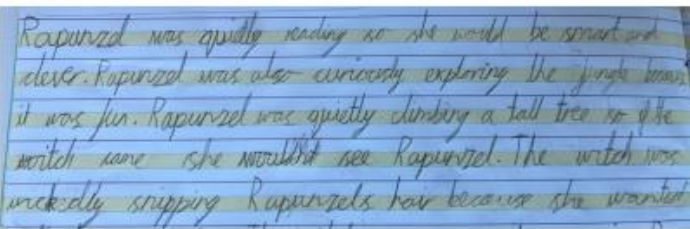 Rapunzel was quietly reading so she would be smart and
clever. Rapunzel was also curiously exploring the jungle because
it was fun. Rapunzel was quietly climbing a tall tree so if the
witch came she wouldn't see Rapunzel. The witch was
wickedly snipping Rapunzels hair because she wanted